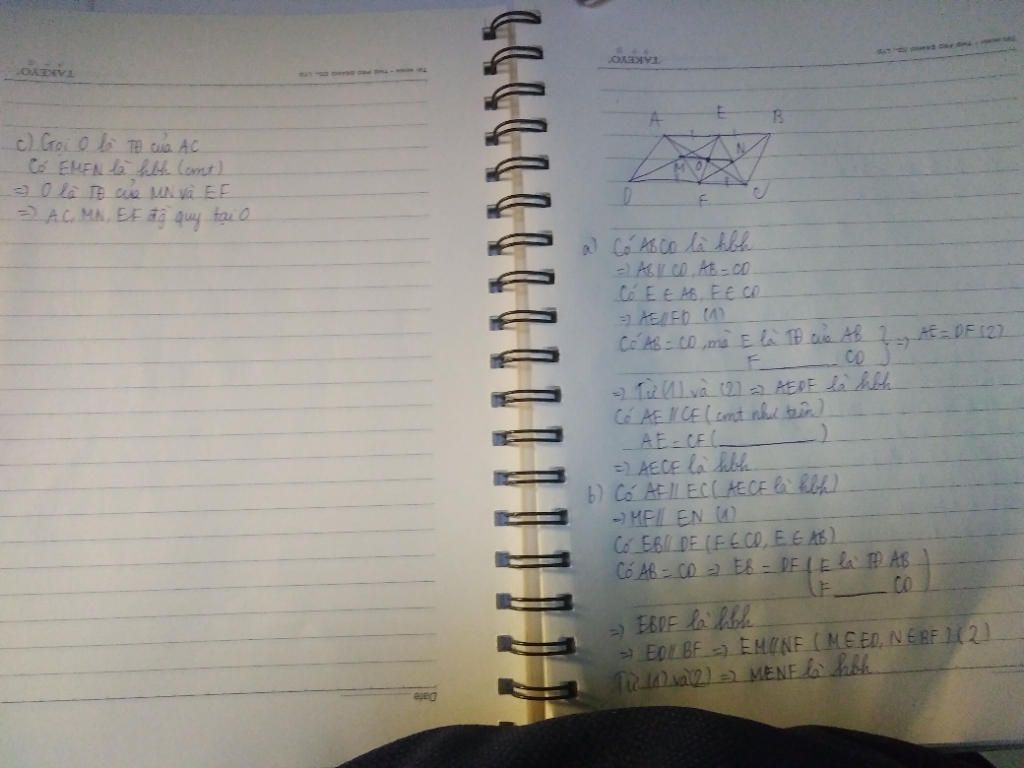 TAKEYO
c) Gọi O là TĐ của AC
Có EMFN là hbh (cmt)
=> O là TĐ của MN và EF
=> AC, MN, EF đg quy tại O
Date
TAKEYO
A E B
M O N
D F C
a) Có ABCD là hbh
=> AB // CD, AB = CD
Có E ∈ AB, F ∈ CD
=> AE // FD (1)
Có AB = CD, mà E là TĐ của AB } => AE = DF (2)
F ______ CD
=> Từ (1) và (2) => AEDF là hbh
Có AE // CF (cmt như trên)
AE = CF (______)
=> AECF là hbh
b) Có AF // EC (AECF là hbh)
=> MF // EN (1)
Có EB // DF (F ∈ CD, E ∈ AB)
Có AB = CD => EB = DF (E là TĐ AB
F ____ CD)
=> EBDF là hbh
=> ED // BF => EM // NF (M ∈ ED, N ∈ BF) (2)
Từ (1) và (2) => MENF là hbh